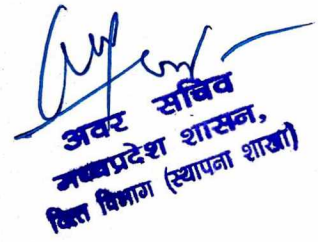 अवर सचिव
मध्यप्रदेश शासन,
वित्त विभाग (स्थापना शाखा)